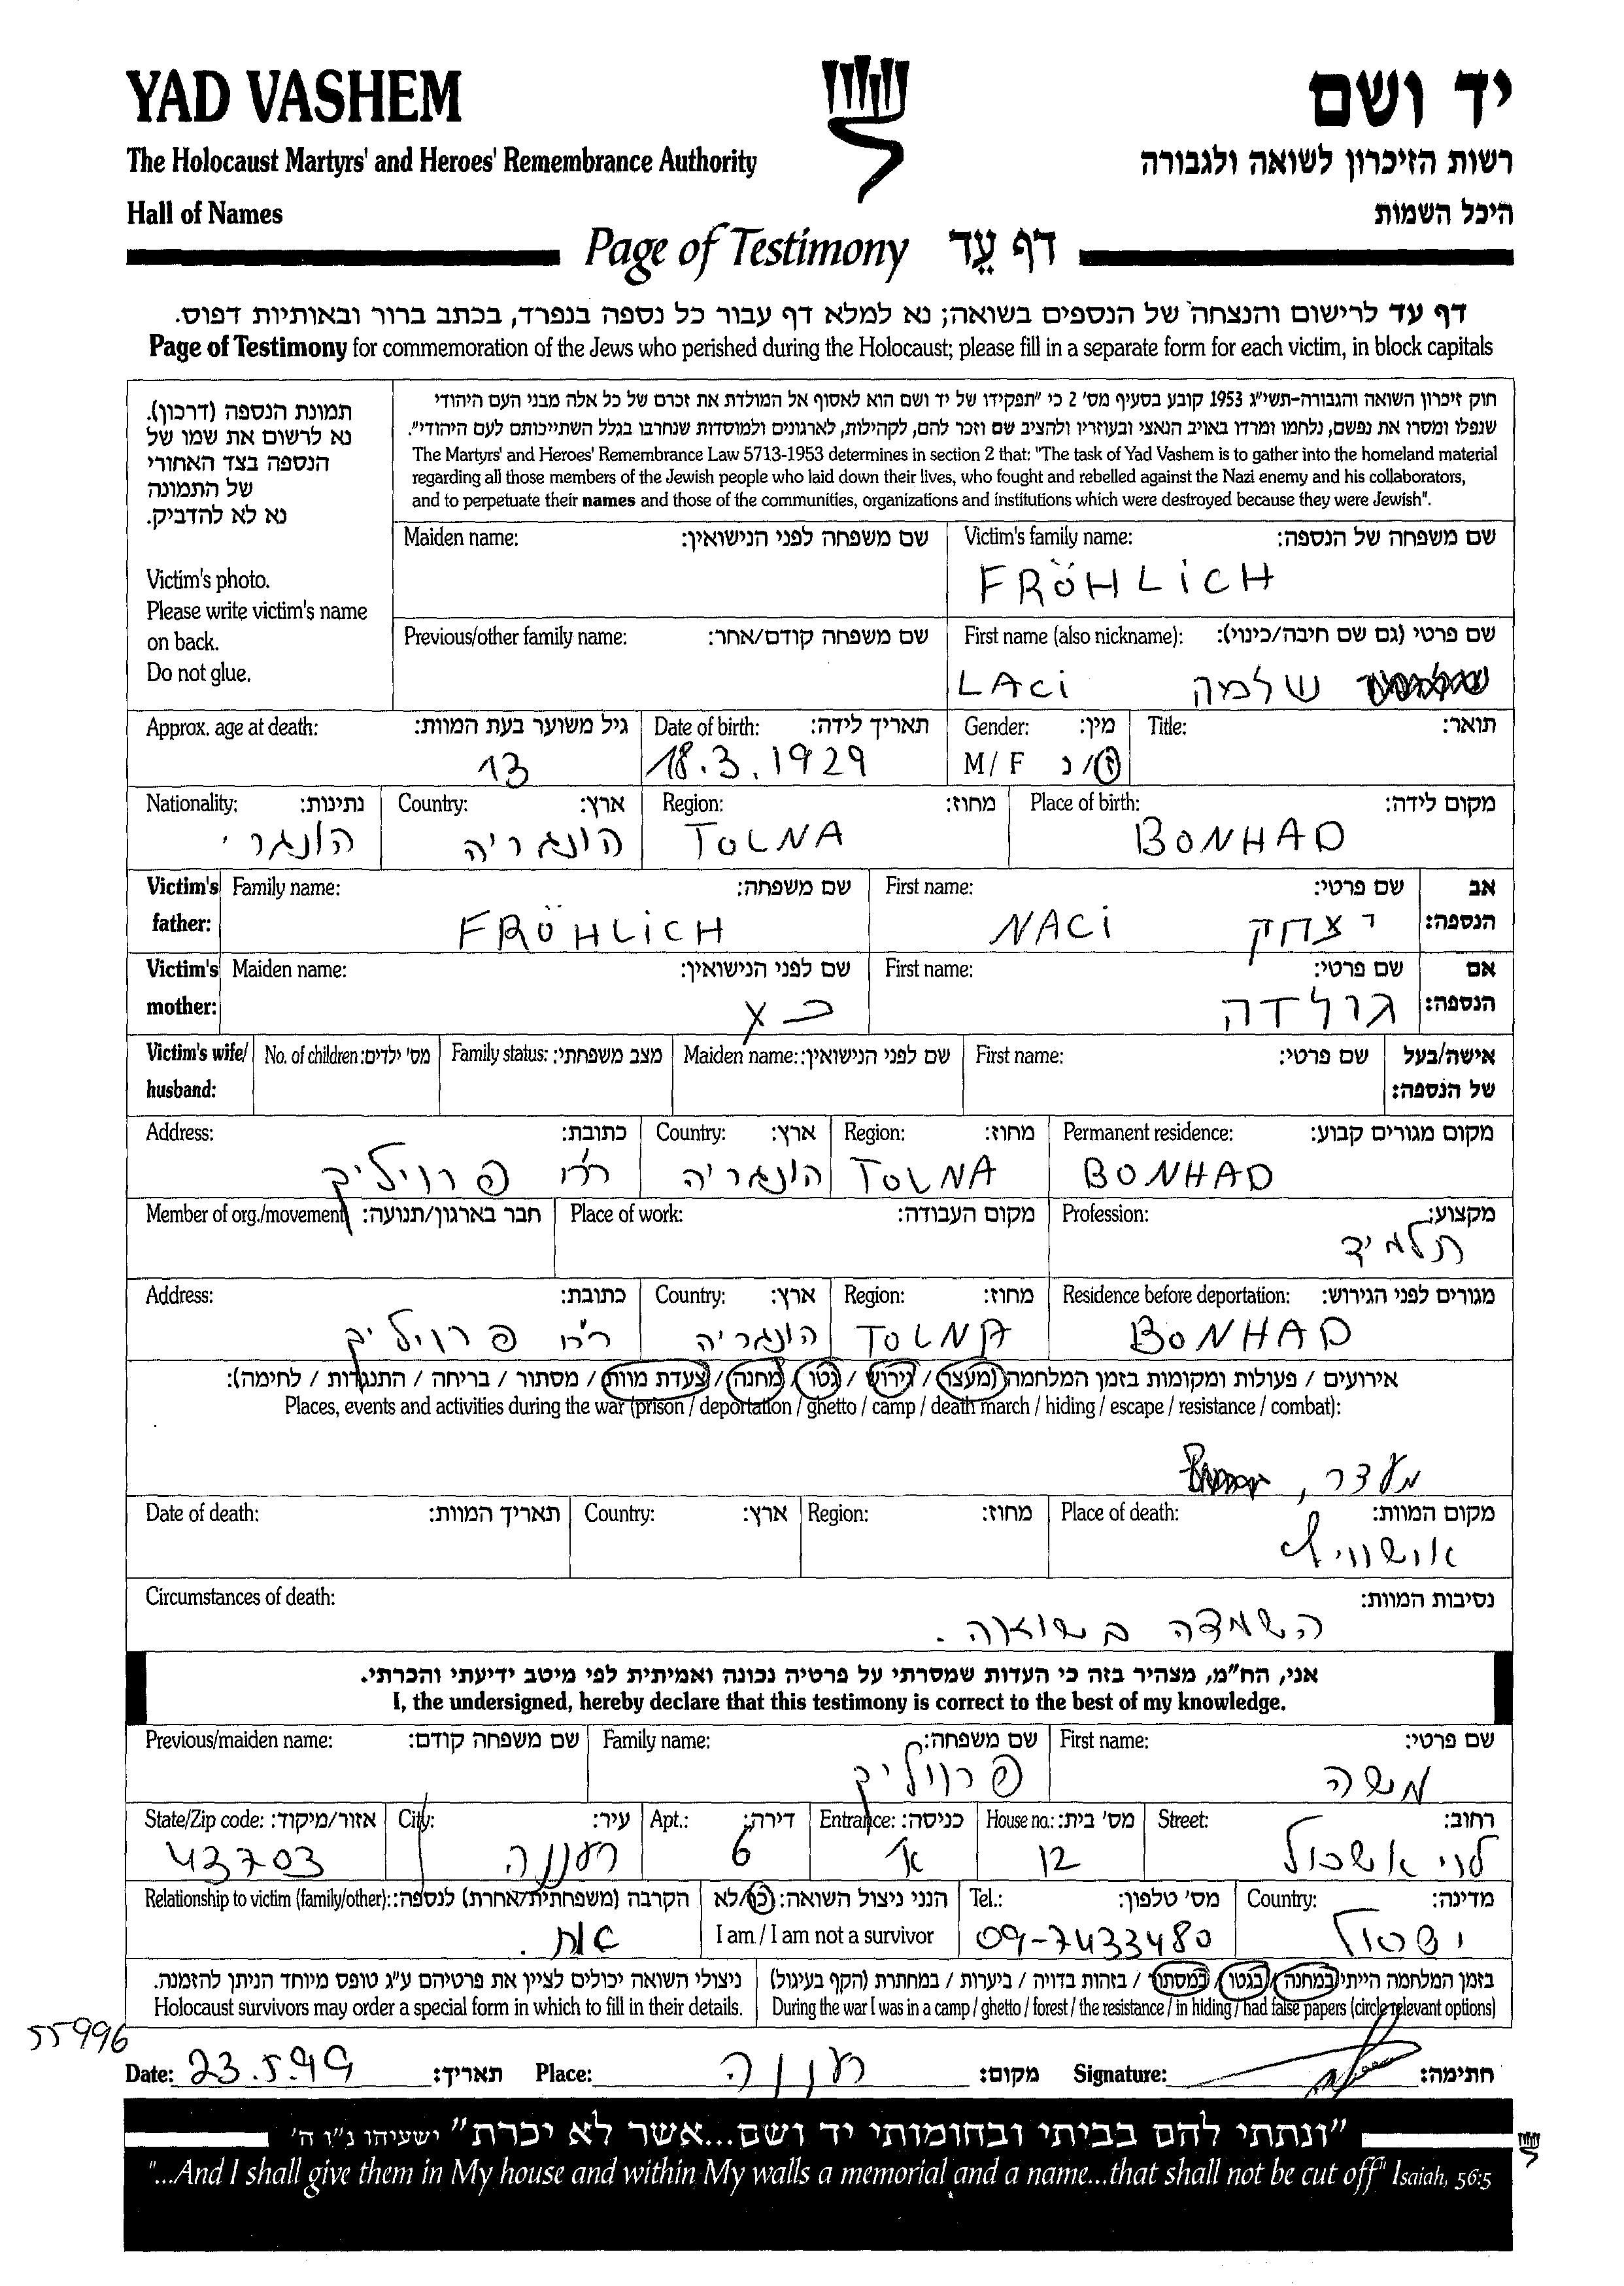 YAD VASHEM
יד ושם
The Holocaust Martyrs' and Heroes' Remembrance Authority
רשות הזיכרון לשואה ולגבורה
Hall of Names
היכל השמות
Page of Testimony דף עֵד
דף עד לרישום והנצחה של הנספים בשואה; נא למלא דף עבור כל נספה בנפרד, בכתב ברור ובאותיות דפוס.
Page of Testimony for commemoration of the Jews who perished during the Holocaust; please fill in a separate form for each victim, in block capitals
תמונת הנספה (דרכון).
נא לרשום את שמו של
הנספה בצד האחורי
של התמונה
נא לא להדביק.
Victim's photo.
Please write victim's name
on back.
Do not glue.
חוק זיכרון השואה והגבורה-תשי"ג 1953 קובע בסעיף מס' 2 כי "תפקידו של יד ושם הוא לאסוף אל המולדת את זכרם של כל אלה מבני העם היהודי
שנפלו ומסרו את נפשם, נלחמו ומרדו באויב הנאצי ובעוזריו ולהציב שם וזכר להם, לקהילות, לארגונים ולמוסדות שנחרבו בגלל השתייכותם לעם היהודי".
The Martyrs' and Heroes' Remembrance Law 5713-1953 determines in section 2 that: "The task of Yad Vashem is to gather into the homeland material
regarding all those members of the Jewish people who laid down their lives, who fought and rebelled against the Nazi enemy and his collaborators,
and to perpetuate their names and those of the communities, organizations and institutions which were destroyed because they were Jewish".
Maiden name: שם משפחה לפני הנישואין:
Victim's family name: שם משפחה של הנספה:
FRÖHLICH
Previous/other family name: שם משפחה קודם/אחר:
First name (also nickname): שם פרטי (גם שם חיבה/כינוי):
LACi שלמה
Approx. age at death: גיל משוער בעת המוות:
13
Date of birth: תאריך לידה:
18.3.1929
Gender: מין:
M/F ז/נ
Title: תואר:
Nationality: נתינות:
הונגרי
Country: ארץ:
הונגריה
Region: מחוז:
TOLNA
Place of birth: מקום לידה:
BONHAD
Victim's father: Family name: שם משפחה:
FRÖHLICH
First name: שם פרטי: אב הנספה:
NACi יצחק
Victim's mother: Maiden name: שם לפני הנישואין:
כץ
First name: שם פרטי: אם הנספה:
גולדה
Victim's wife/husband: No. of children: מס' ילדים: Family status: מצב משפחתי: Maiden name: שם לפני הנישואין: First name: שם פרטי: אישה/בעל של הנספה:
Address: כתובת:
רח' פרויליך
Country: ארץ:
הונגריה
Region: מחוז:
TOLNA
Permanent residence: מקום מגורים קבוע:
BONHAD
Member of org./movement: חבר בארגון/תנועה: Place of work: מקום העבודה:
Profession: מקצוע:
תלמיד
Address: כתובת:
רח' פרויליך
Country: ארץ:
הונגריה
Region: מחוז:
TOLNA
Residence before deportation: מגורים לפני הגירוש:
BONHAD
אירועים / פעולות ומקומות בזמן המלחמה (מעצר / גירוש / גטו / מחנה / צעדת מוות / מסתור / בריחה / התנגדות / לחימה):
Places, events and activities during the war (prison / deportation / ghetto / camp / death march / hiding / escape / resistance / combat):
Date of death: תאריך המוות: Country: ארץ: Region: מחוז: Place of death: מקום המוות:
אושוויץ
Circumstances of death: נסיבות המוות:
השמדה בשואה.
אני, הח"מ, מצהיר בזה כי העדות שמסרתי על פרטיה נכונה ואמיתית לפי מיטב ידיעתי והכרתי.
I, the undersigned, hereby declare that this testimony is correct to the best of my knowledge.
Previous/maiden name: שם משפחה קודם:
Family name: שם משפחה:
פרויליך
First name: שם פרטי:
משה
State/Zip code: אזור/מיקוד:
43703
City: עיר:
רעננה
Apt.: דירה:
6
Entrance: כניסה:
א'
House no.: מס' בית:
12
Street: רחוב:
לוי אשכול
Relationship to victim (family/other): הקרבה (משפחתית/אחרת) לנספה:
אח.
הנני ניצול השואה: כן/לא
I am / I am not a survivor
Tel.: מס' טלפון:
09-7433480
Country: מדינה:
ישראל
ניצולי השואה יכולים לציין את פרטיהם ע"ג טופס מיוחד הניתן להזמנה.
Holocaust survivors may order a special form in which to fill in their details.
בזמן המלחמה הייתי במחנה / בגטו / במסתור / בזהות בדויה / ביערות / במחתרת (הקף בעיגול)
During the war I was in a camp / ghetto / forest / the resistance / in hiding / had false papers (circle relevant options)
55996
Date: 23.5.99 תאריך: Place: רעננה מקום: Signature: חתימה:
"ונתתי להם בביתי ובחומותי יד ושם...אשר לא יכרת" ישעיהו נ"ו ה'
"...And I shall give them in My house and within My walls a memorial and a name...that shall not be cut off" Isaiah, 56:5